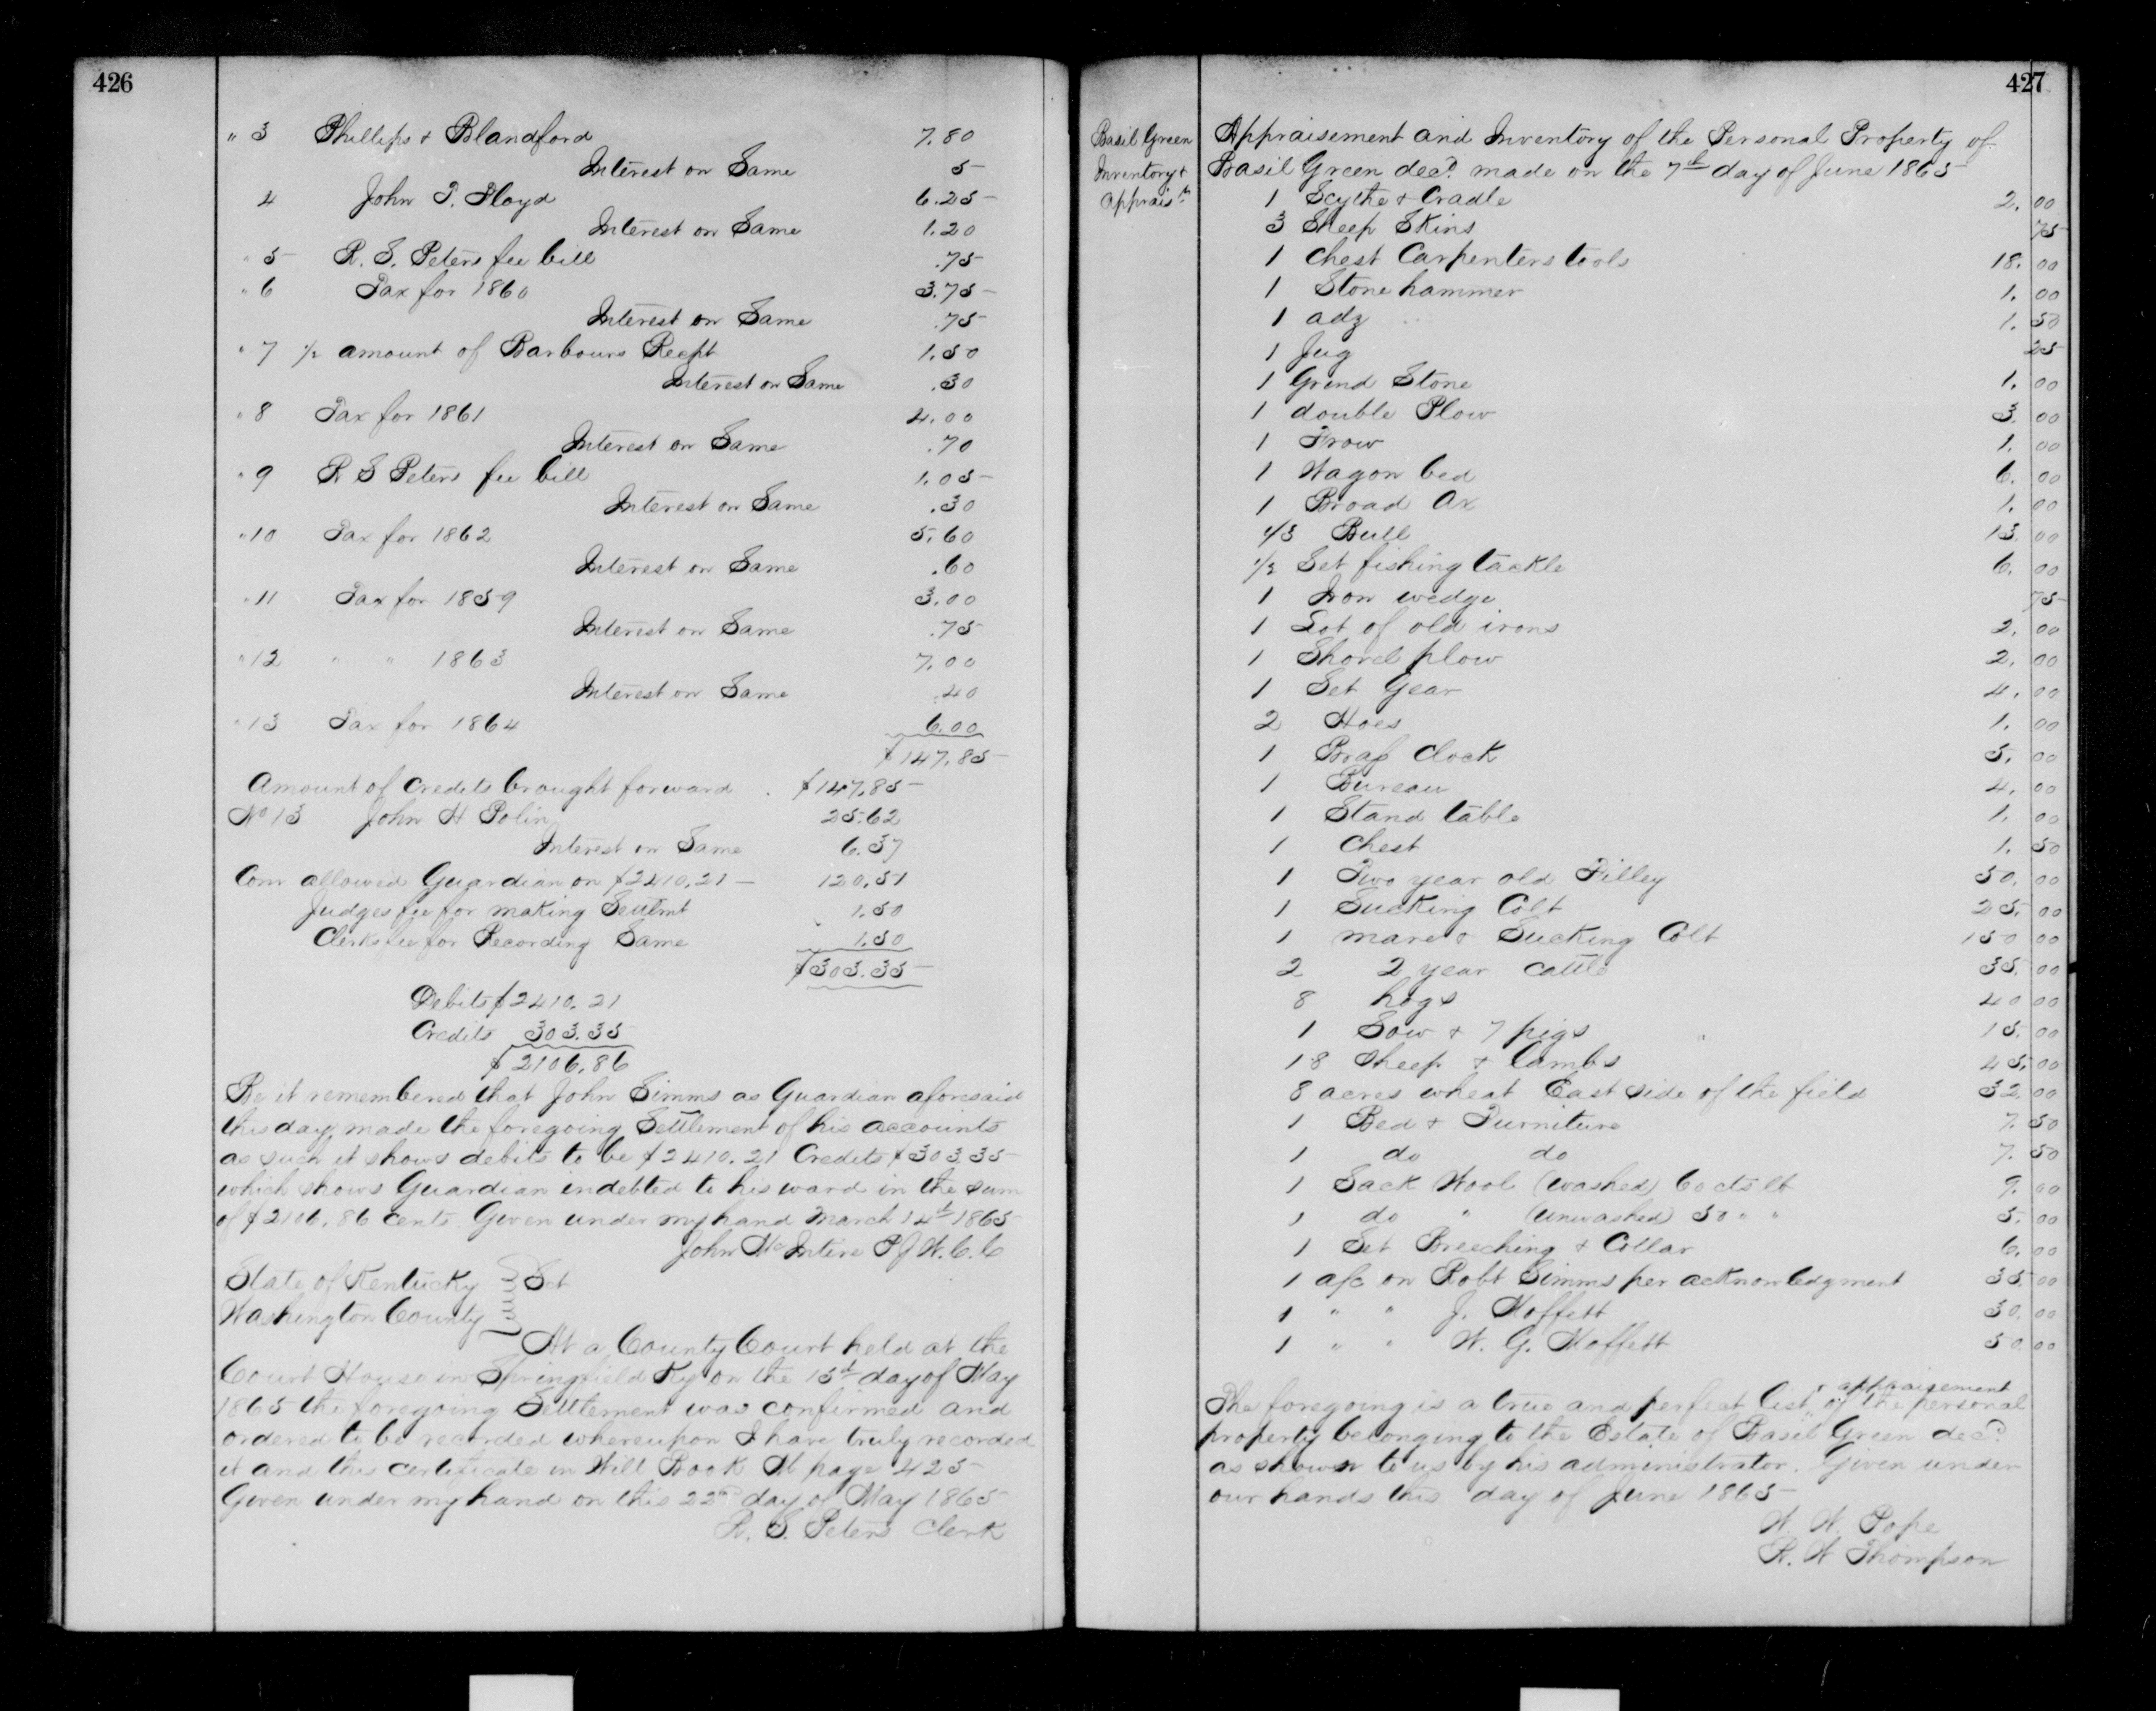 426
" 3 Phillips & Blandford 7.80
Interest on Same 5
4 John T. Floyd 6.25
Interest on Same 1.20
" 5 R. S. Peters fee bill .75
" 6 Tax for 1860 3.75
Interest on Same .75
" 7 1/2 amount of Barbours Recpt 1.50
Interest on Same .30
" 8 Tax for 1861 4.00
Interest on Same .70
" 9 R S Peters fee bill 1.05
Interest on Same .30
" 10 Tax for 1862 5.60
Interest on Same .60
" 11 Tax for 1859 3.00
Interest on Same .75
" 12 " " 1863 7.00
Interest on Same .40
" 13 Tax for 1864 6.00
$147.85
Amount of Credits brought forward $147.85
No 13 John H Polin 25.62
Interest on Same 6.37
Com allowed Guardian on $2410.21 — 120.51
Judges fee for making Settlmt 1.50
Clerks fee for Recording Same 1.50
$303.35
Debits $2410.21
Credits 303.35
$2106.86
Be it remembered that John Simms as Guardian aforesaid
this day made the foregoing Settlement of his accounts
as such it shows debits to be $2410.21 Credits $303.35
which shows Guardian indebted to his ward in the sum
of $2106.86 cents. Given under my hand March 14th 1865
John McIntire P J W. C. C
State of Kentucky } Sct
Washington County }
At a County Court held at the
Court House in Springfield Ky on the 15th day of May
1865 the foregoing Settlement was confirmed and
ordered to be recorded whereupon I have truly recorded
it and this certificate in Will Book page 425
Given under my hand on this 22nd day of May 1865
R. S. Peters Clerk
427
Basil Green
Inventory &
appraismt
Appraisement and Inventory of the Personal Property of
Basil Green decd. made on the 7th day of June 1865
1 Scythe & Cradle 2.00
3 Sheep Skins 75
1 Chest Carpenters tools 18.00
1 Stone hammer 1.00
1 adz 1.50
1 Jug 25
1 Grind Stone 1.00
1 double Plow 3.00
1 Frow 1.00
1 Wagon bed 6.00
1 Broad Ax 1.00
1/3 Bull 13.00
1/2 Set fishing tackle 6.00
1 Iron wedge 75
1 Lot of old irons 2.00
1 Shovel plow 2.00
1 Set Gear 4.00
2 Hoes 1.00
1 Brass Clock 5.00
1 Bureau 4.00
1 Stand table 1.00
1 Chest 1.50
1 Two year old Filley 50.00
1 Sucking Colt 25.00
1 mare & Sucking Colt 150 00
2 2 year cattle 35.00
8 hogs 40 00
1 Sow & 7 pigs 15.00
18 Sheep & Lambs 45.00
8 acres wheat East side of the field 32.00
1 Bed & Furniture 7.50
1 do do 7.50
1 Sack Wool (washed) 60 cts lb 9.00
1 do " (unwashed) 50 " " 5.00
1 Set Breeching & Collar 6.00
1 a/c on Robt Simms per acknowledgment 35.00
1 " " J. Moffett 30.00
1 " " W. G. Moffett 50.00
The foregoing is a true and perfect list & appraisement of the personal
property belonging to the Estate of Basil Green decd
as shown to us by his administrator. Given under
our hands this day of June 1865
W. W. Pope
R. W Thompson